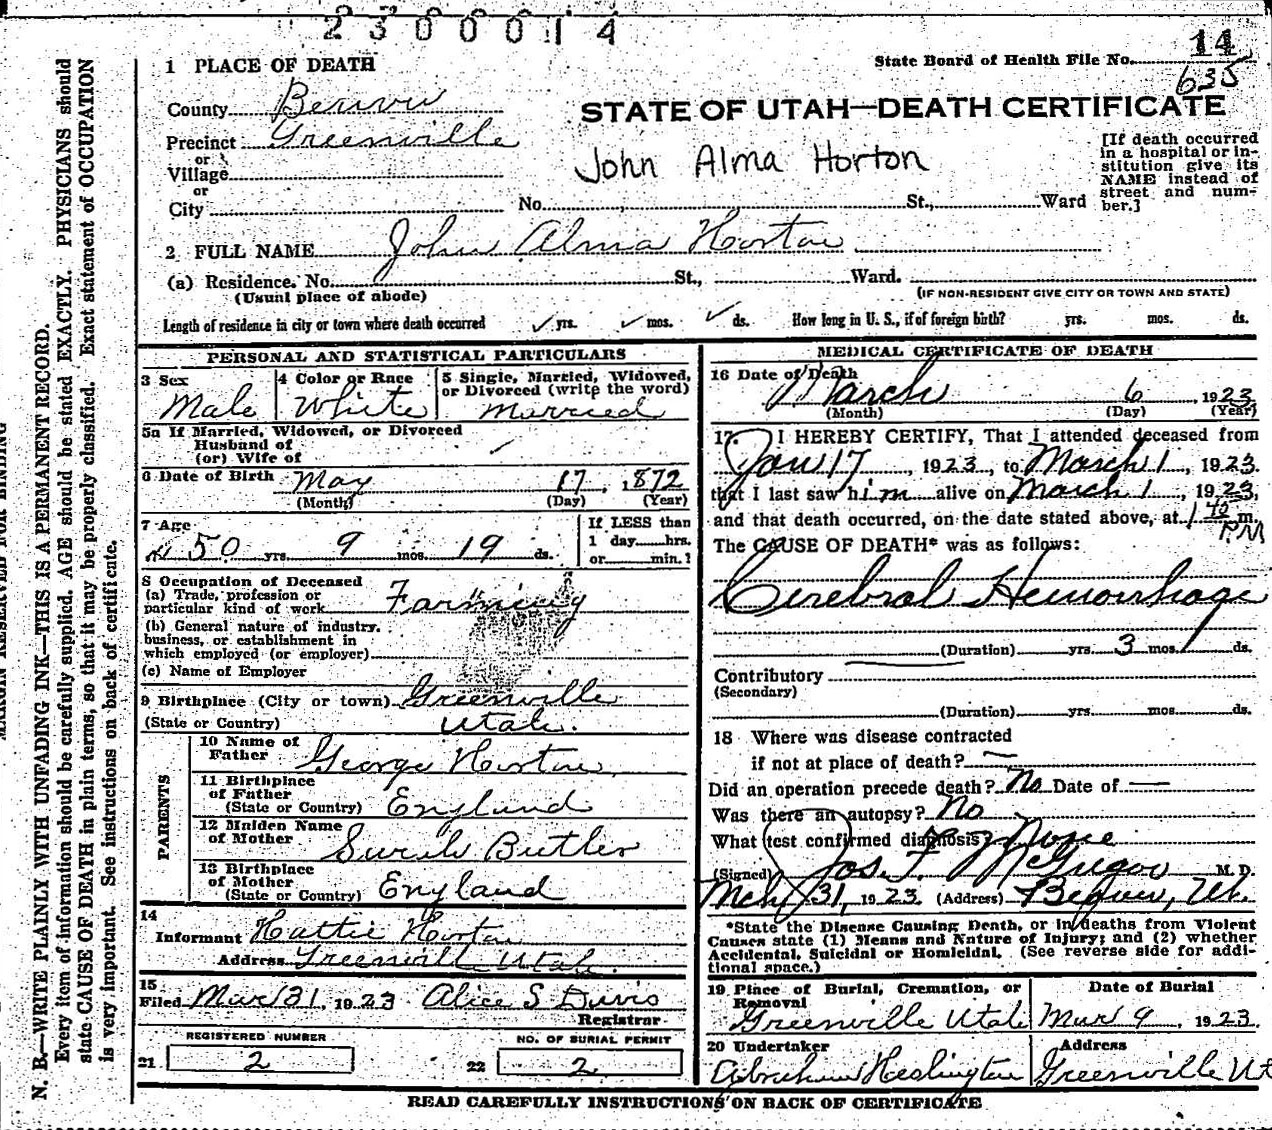 2300014
14
State Board of Health File No.
635
1 PLACE OF DEATH
County
STATE OF UTAH—DEATH CERTIFICATE
Precinct Greenville
or
Village
or
City
John Alma Horton
[If death occurred
in a hospital or in-
stitution give its
NAME instead of
street and num-
ber.]
No. St., Ward
2 FULL NAME John Alma Horton
(a) Residence. No. St., Ward.
(Usual place of abode)
(IF NON-RESIDENT GIVE CITY OR TOWN AND STATE)
Length of residence in city or town where death occurred ✓ yrs. ✓ mos. ✓ ds. How long in U. S., if of foreign birth? yrs. mos. ds.
PERSONAL AND STATISTICAL PARTICULARS
3 Sex 4 Color or Race 5 Single, Married, Widowed,
or Divorced (write the word)
Male White Married
5a If Married, Widowed, or Divorced
Husband of
(or) Wife of
6 Date of Birth May 17, 1872
(Month) (Day) (Year)
7 Age
50 yrs. 9 mos. 19 ds.
If LESS than
1 day hrs.
or min.?
8 Occupation of Deceased
(a) Trade, profession or
particular kind of work Farming
(b) General nature of industry.
business, or establishment in
which employed (or employer)
(c) Name of Employer
9 Birthplace (City or town) Greenville
(State or Country) Utah.
PARENTS
10 Name of
Father George Horton
11 Birthplace
of Father
(State or Country) England
12 Maiden Name
of Mother Sarah Butler
13 Birthplace
of Mother
(State or Country) England
14
Informant Hattie Horton
Address Greenville Utah.
15
Filed Mar 21, 1923 Alice S Davis
Registrar
REGISTERED NUMBER
21 2
NO. OF BURIAL PERMIT
22 2
MEDICAL CERTIFICATE OF DEATH
16 Date of Death
March 6, 1923
(Month) (Day) (Year)
17. I HEREBY CERTIFY, That I attended deceased from
Jan 17, 1923, to March 1, 1923.
that I last saw him alive on March 1, 1923,
and that death occurred, on the date stated above, at 1 40 m.
P.M
The CAUSE OF DEATH* was as follows:
Cerebral Hemorrhage
(Duration) yrs. 3 mos. ds.
Contributory
(Secondary)
(Duration) yrs. mos. ds.
18 Where was disease contracted
if not at place of death? —
Did an operation precede death? No Date of —
Was there an autopsy? No
What test confirmed diagnosis? None
(Signed) Jos. F. M. D.
31, 1923. (Address) Ut.
*State the Disease Causing Death, or in deaths from Violent
Causes state (1) Means and Nature of Injury; and (2) whether
Accidental, Suicidal or Homicidal. (See reverse side for addi-
tional space.)
19 Place of Burial, Cremation, or
Removal
Date of Burial
Greenville Utah Mar 9, 1923.
20 Undertaker Address
Abraham Heslington Greenville Ut
READ CAREFULLY INSTRUCTIONS ON BACK OF CERTIFICATE
MARGIN RESERVED FOR BINDING
N. B.—WRITE PLAINLY WITH UNFADING INK—THIS IS A PERMANENT RECORD.
Every item of information should be carefully supplied. AGE should be stated EXACTLY. PHYSICIANS should
state CAUSE OF DEATH in plain terms, so that it may be properly classified. Exact statement of OCCUPATION
is very important. See instructions on back of certificate.